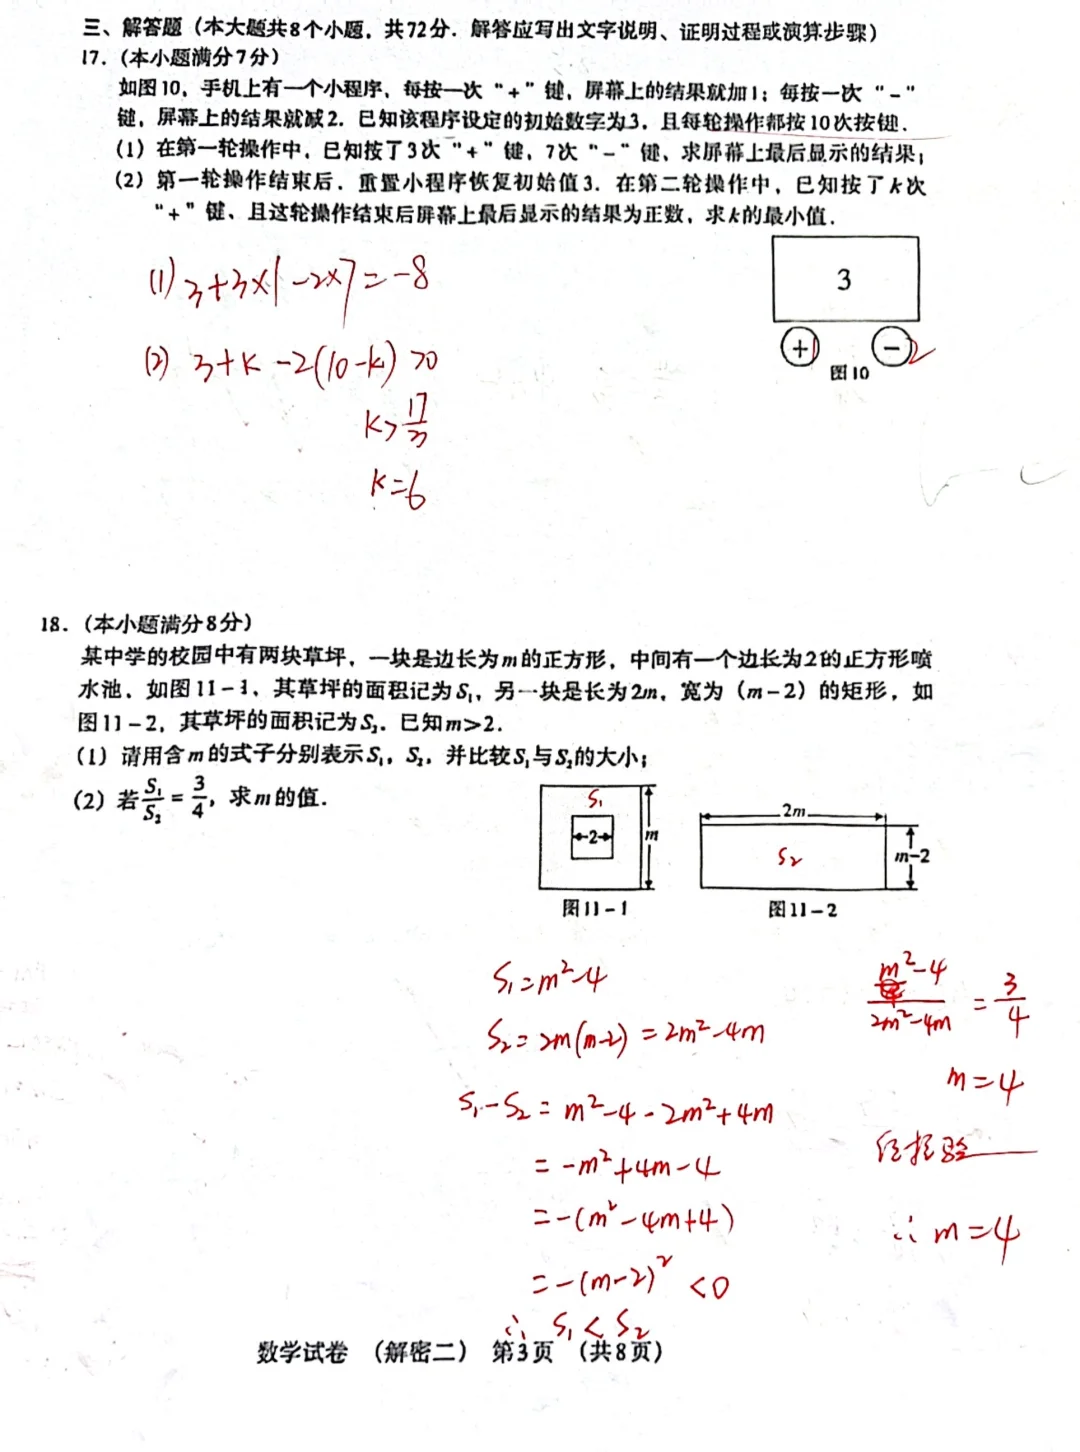 三、解答题（本大题共8个小题，共72分．解答应写出文字说明、证明过程或演算步骤）
17.（本小题满分7分）
如图10，手机上有一个小程序，每按一次“+”键，屏幕上的结果就加1；每按一次“-”
键，屏幕上的结果就减2．已知该程序设定的初始数字为3，且每轮操作都按10次按键．
（1）在第一轮操作中，已知按了3次“+”键，7次“-”键，求屏幕上最后显示的结果；
（2）第一轮操作结束后，重置小程序恢复初始值3．在第二轮操作中，已知按了k次
“+”键，且这轮操作结束后屏幕上最后显示的结果为正数，求k的最小值．
(1) 3+3×1-2×7=-8
3
+ 1 - 2
图10
(2) 3+k-2(10-k)>0
k>17/3
k=6
18.（本小题满分8分）
某中学的校园中有两块草坪，一块是边长为m的正方形，中间有一个边长为2的正方形喷
水池，如图11-1，其草坪的面积记为S₁，另一块是长为2m，宽为（m-2）的矩形，如
图11-2，其草坪的面积记为S₂．已知m>2．
（1）请用含m的式子分别表示S₁，S₂，并比较S₁与S₂的大小；
（2）若S₁/S₂=3/4，求m的值．
S₁
2
m
图11-1
2m
S₂
m-2
图11-2
S₁=m²-4
S₂=2m(m-2)=2m²-4m
S₁-S₂=m²-4-2m²+4m
=-m²+4m-4
=-(m²-4m+4)
=-(m-2)²<0
∴S₁<S₂
(m²-4)/(2m²-4m)=3/4
m=4
经检验
∴m=4
数学试卷 （解密二） 第3页 （共8页）